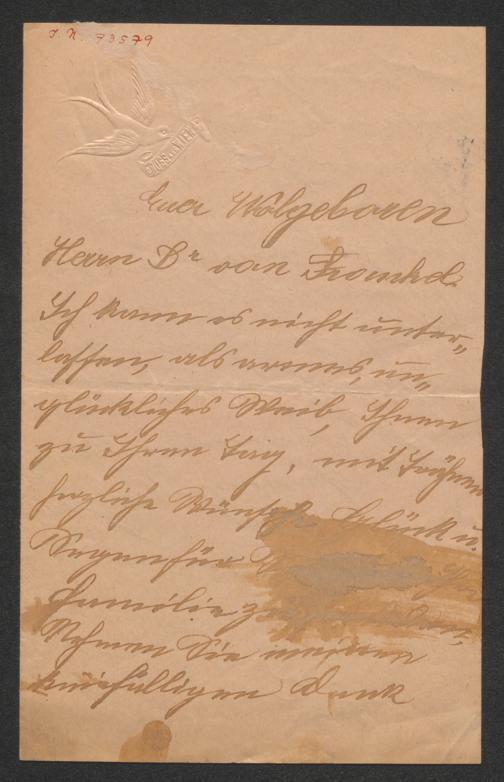 J. N. 73579
GRUSS a. WIEN
Euer Wolgeboren
Herrn Dr van Frankel.
Ich kann es nicht unter„
lassen, als armes, un„
glückliches Weib, Ihnen
zu Ihren Tag, mit Trähnen
herzliche Wünsche Glück u.
Segen für
Familie
Nehmen Sie meinen
kniefälligen Dank